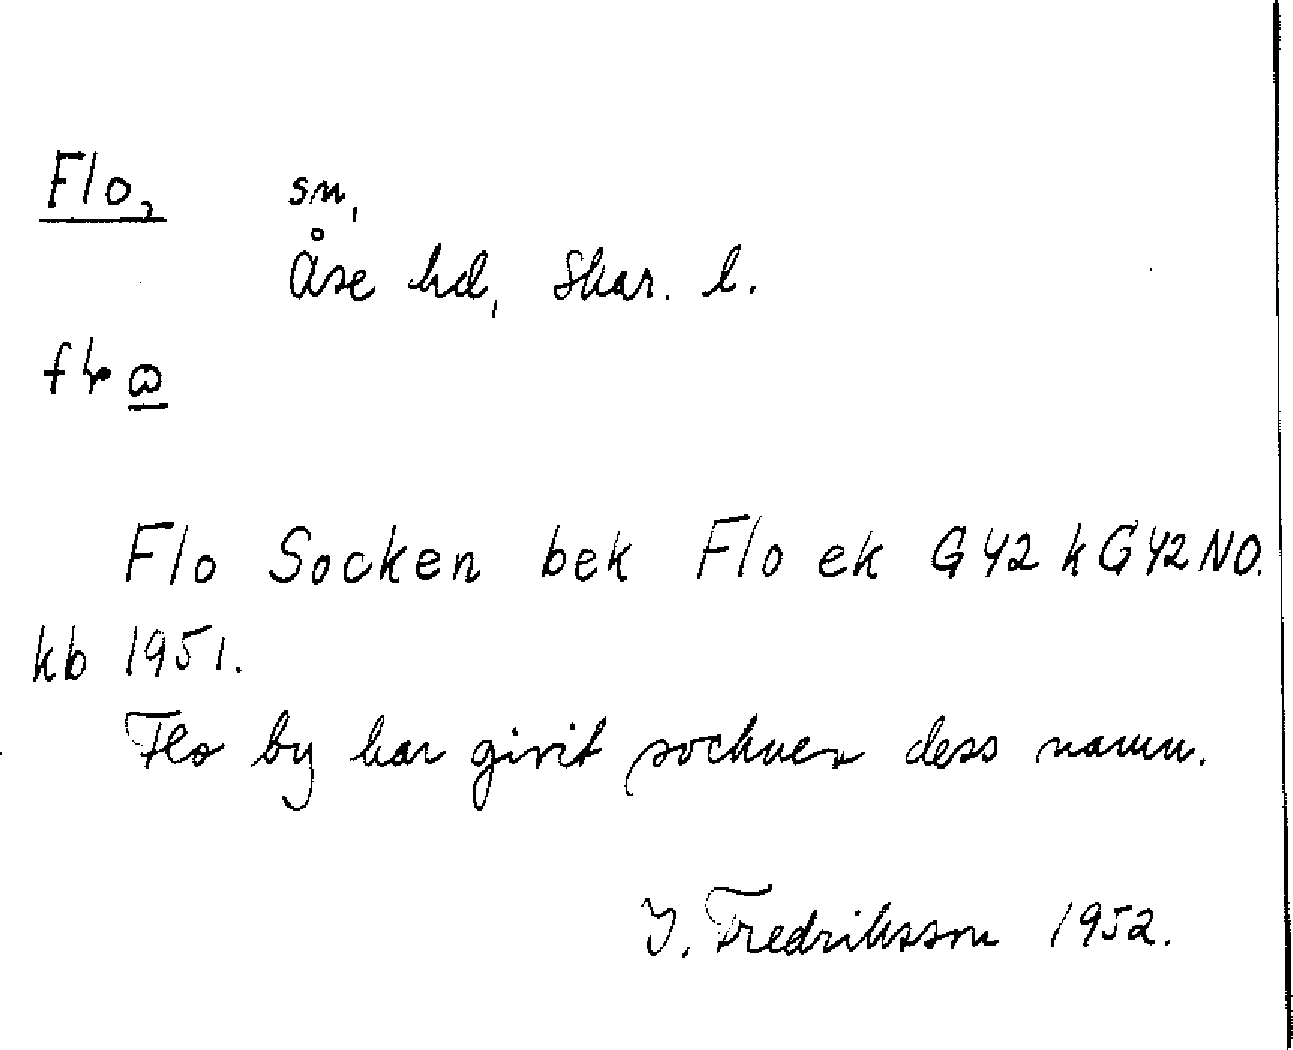 Flo, sn,
Åse hd, Skar. l.
Flo Socken bek Flo ek G42 k G42NO.
kb 1951.
Flo by har givit socknen dess namn.
Fredriksson 1952.